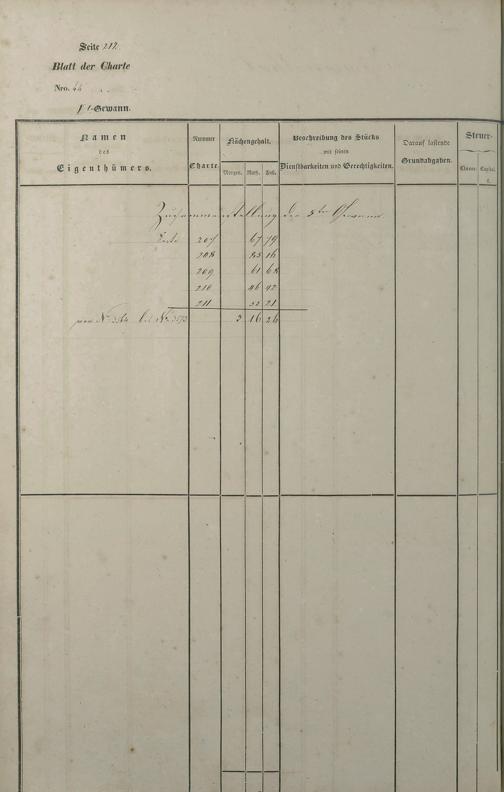 Seite 212
Blatt der Charte
Nro. 44
8t-Gewann.
Namen des Eigenthümers.
Nummer Charte.
Flächengehalt.
Morgen. Ruth. Fuß.
Beschreibung des Stücks mit seinen Dienstbarkeiten und Gerechtigkeiten.
Darauf lastende Grundabgaben.
Steuer-
Classe. Capital.
fl.
Zusammenstellung der 8ten Gewann
Seite 207 67 79
208 16
209 61 68
210 46 92
211 21
von No bis No 3 16 26